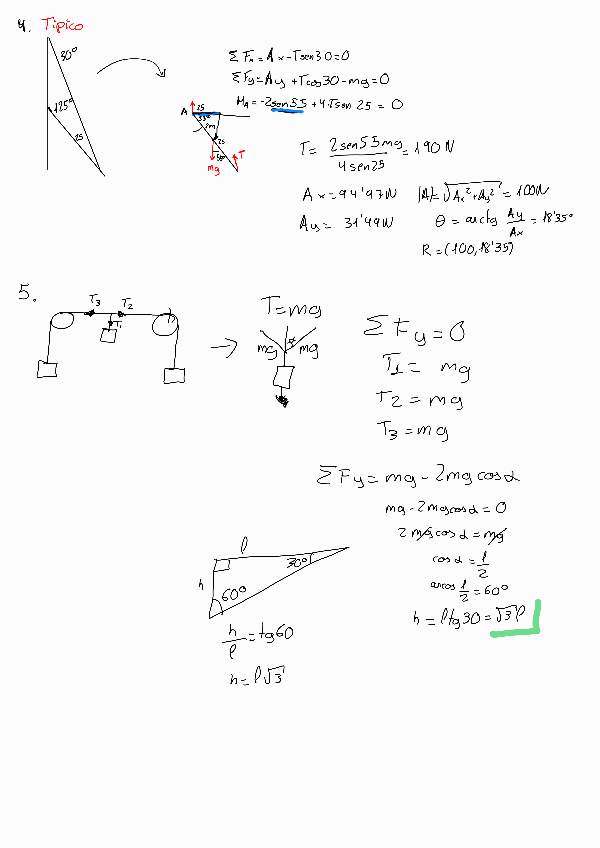 4. Típico
30°
125°
25
ΣFx = Ax - Tsen30 = 0
ΣFy = Ay + Tcos30 - mg = 0
MA = -2sen55 + 4·Tsen 25 = 0
25
A
55°
2m
25
T
mg
T = 2sen55mg / 4sen25 = 190N
Ax = 94'97N |A| = √Ax² + Ay² = 100N
Ay = 31'49N θ = arctg Ay/Ax = 18'35°
R = (100, 18'35)
5.
T3 T2
T1
T = mg
mg α mg
ΣFy = 0
T1 = mg
T2 = mg
T3 = mg
ΣFy = mg - 2mg cosα
mg - 2mgcosα = 0
2mg cosα = mg
cosα = 1/2
arcos 1/2 = 60°
h = l tg30 = √3 l
l
30°
h
60°
h/l = tg60
h = l√3